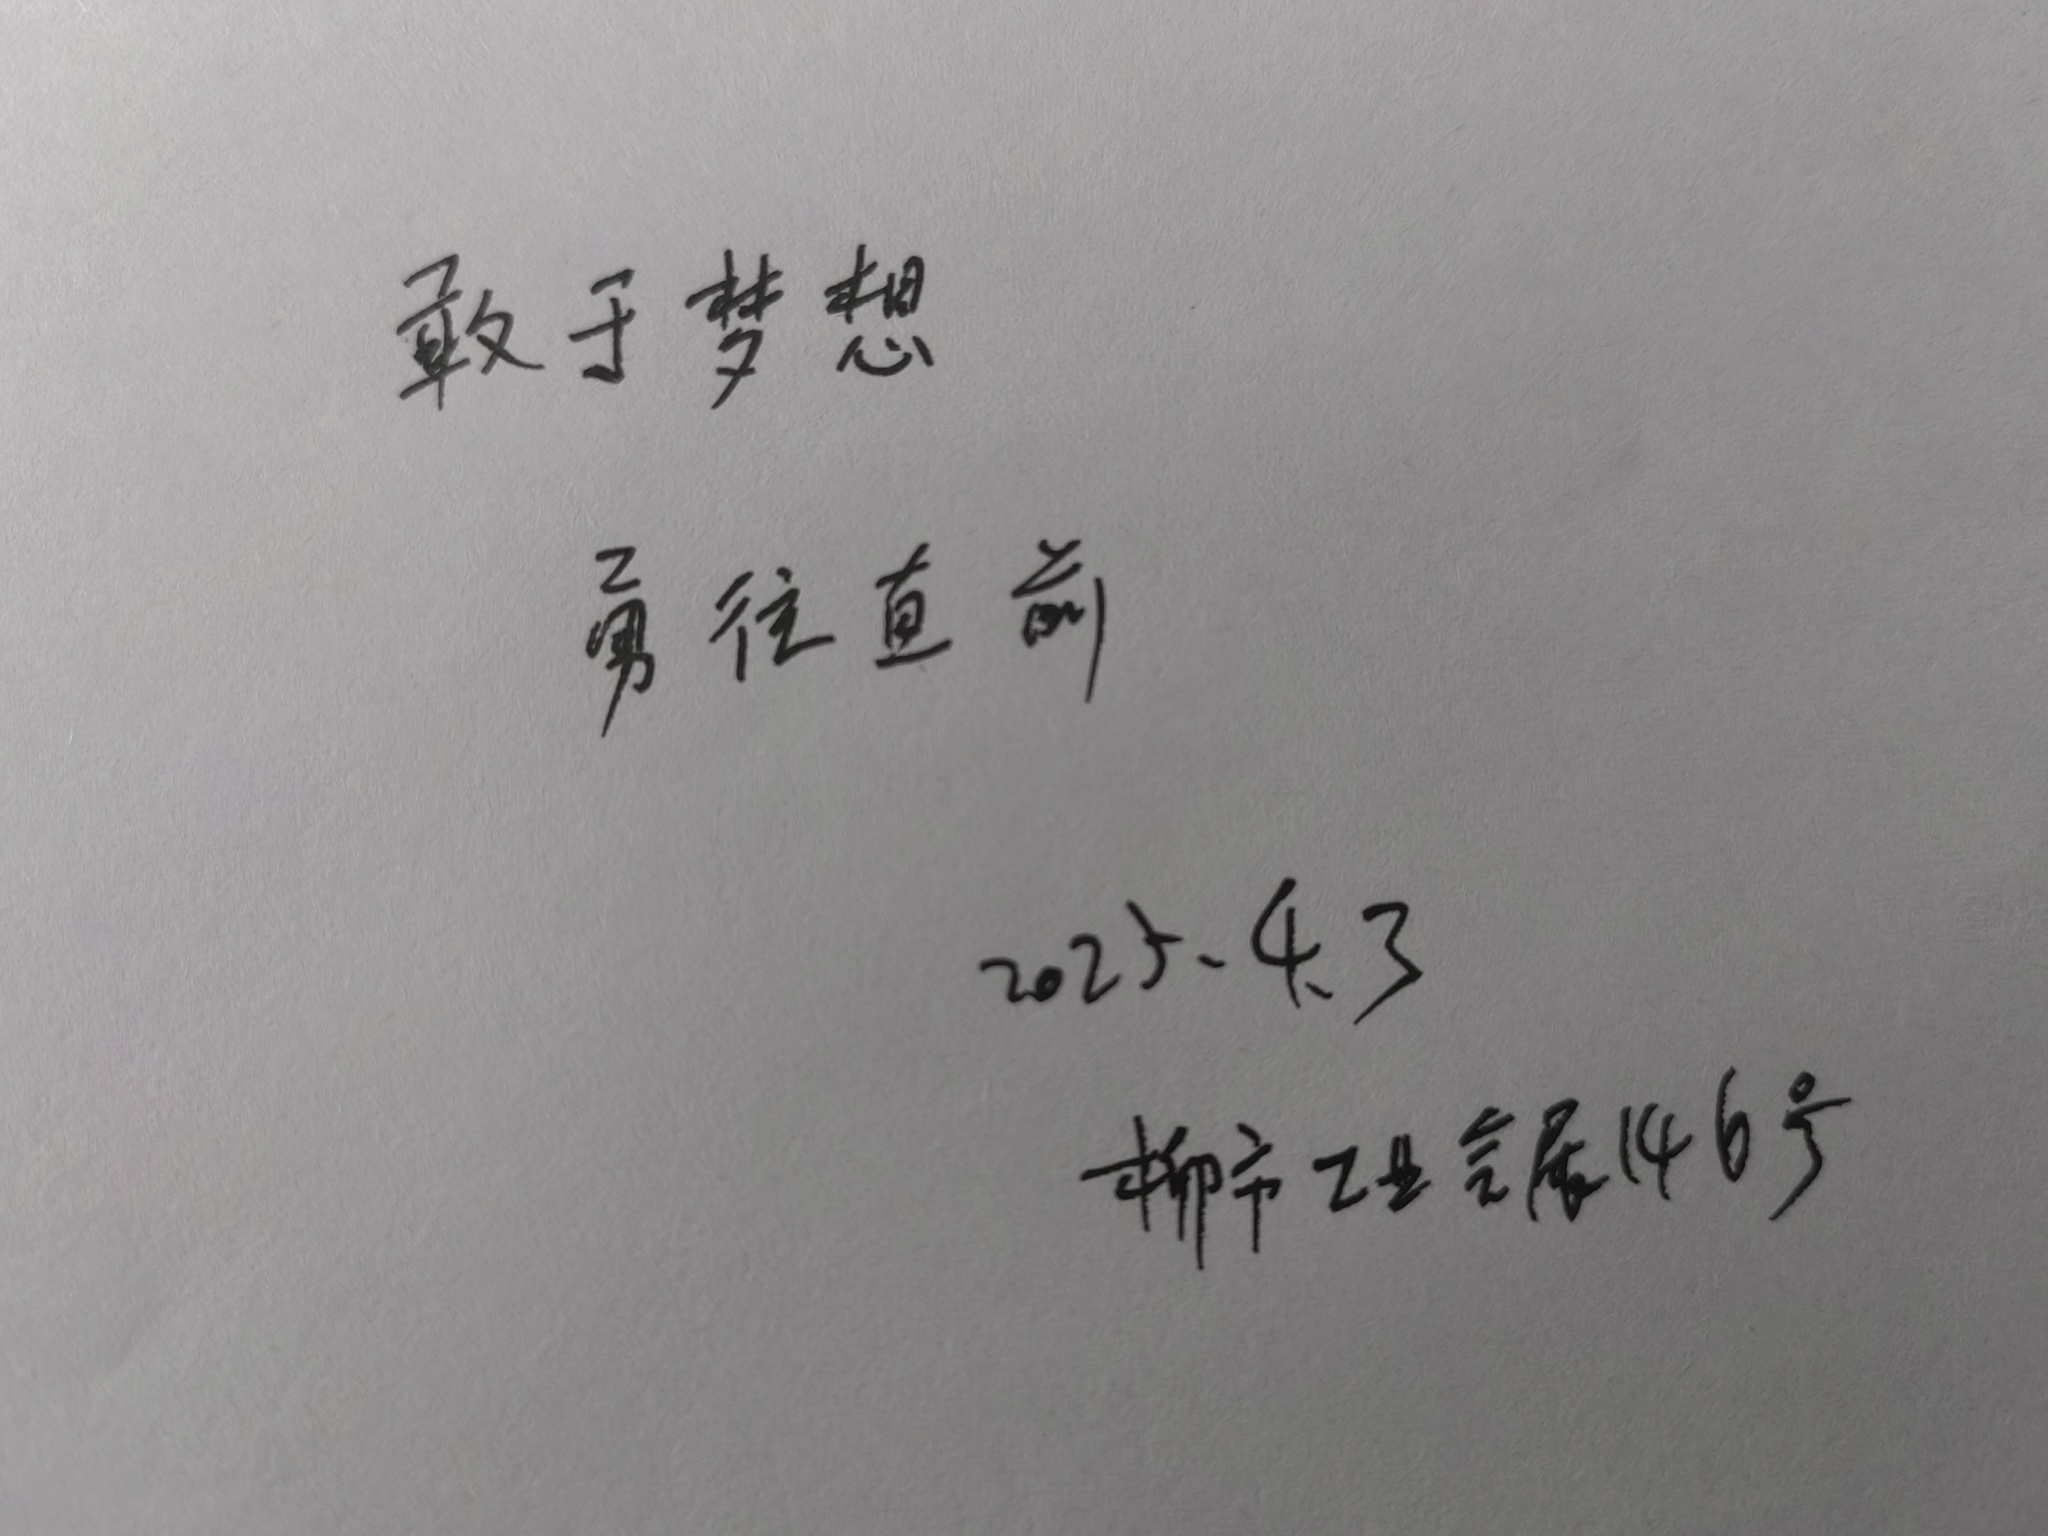 敢于梦想
勇往直前
2025.4.3
柳市工业会展146号